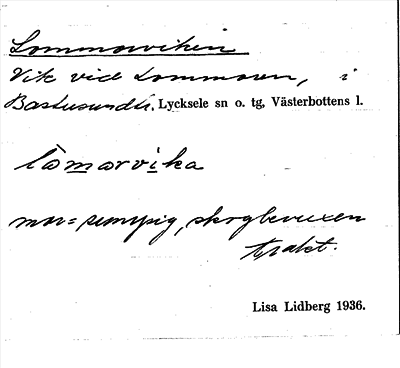 Lommarviken
Vik vid Lommaren, i
Bastusundet. Lycksele sn o. tg, Västerbottens l.
lòmarvika
mor= sumpig, skogbevuxen
trakt.
Lisa Lidberg 1936.